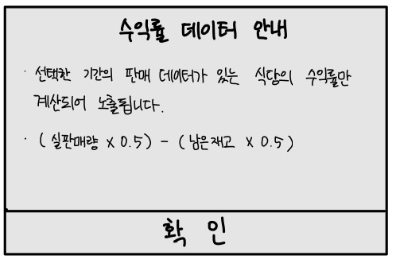 수익률 데이터 안내
· 선택한 기간의 판매 데이터가 있는 식당의 수익률만
계산되어 노출됩니다.
· (실판매량 x 0.5) - (남은재고 x 0.5)
확인